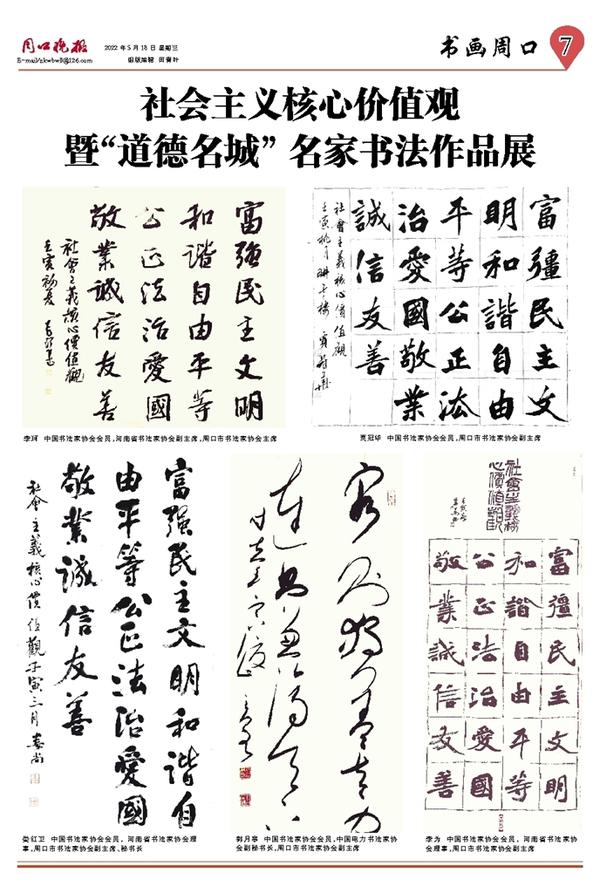 周口晚报
2022年5月18日 星期三
E-mail/zkwbw8@126.com
组版编辑 田青叶
书画周口
7
社会主义核心价值观
暨“道德名城”名家书法作品展
富强民主文明
和諧自由平等
公正法治愛國
敬業誠信友善
社會主義核心價值觀
壬寅初夏
李珂 中国书法家协会会员,河南省书法家协会副主席,周口市书法家协会主席
富彊民主文
明和諧自由
平等公正法
治愛國敬業
誠信友善
社會主義核心價值觀
壬寅桃月
贾冠华 中国书法家协会会员,周口市书法家协会副主席
富强民主文明和谐自
由平等公正法治愛國
敬業誠信友善
社會主義核心價值觀壬寅三月
娄红卫 中国书法家协会会员,河南省书法家协会理
事,周口市书法家协会副主席、秘书长
郭月亭 中国书法家协会会员,中国电力书法家协
会副秘书长,周口市书法家协会副主席
社會主義核
心價值觀
富彊民主文明
和諧自由平等
公正法治愛國
敬業誠信友善
李为 中国书法家协会会员,河南省书法家协
会理事,周口市书法家协会副主席